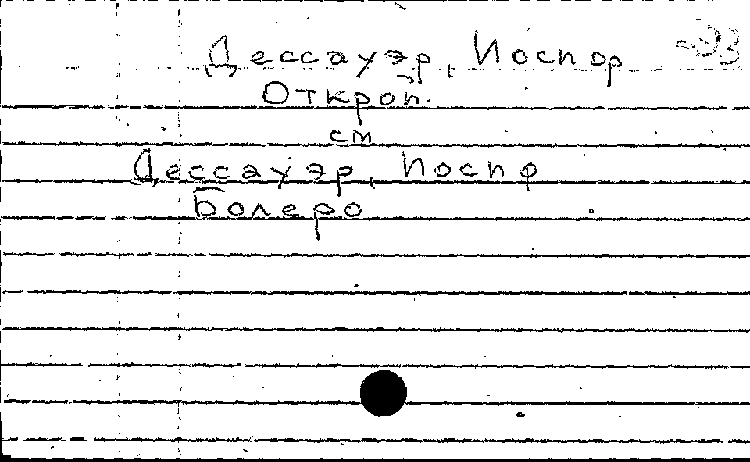 Дессауэр, Иоспор
Откроп.
см
Дессауэр, Иоспф
Болеро